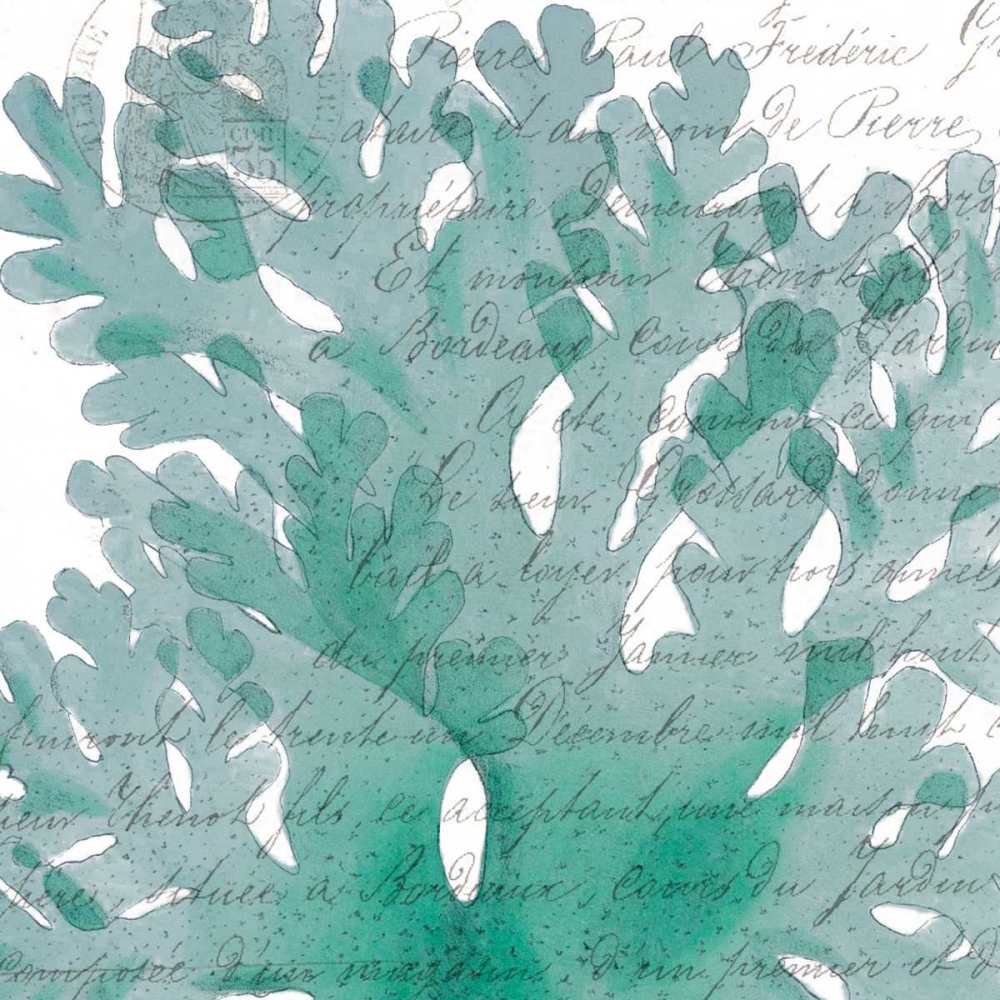 Pierre Paul Frédéric
et au nom de Pierre
propriétaire, demeurant à Bord
Et monsieur Thenot fils
a Bordeaux cours du Jardin
A été convenu ce qui
Le sieur Grossard donne
bail a loyer, pour trois années
du premier Janvier mil huit
finiront le trente-un Décembre mil huit c
sieur Thenot fils ce acceptant, une maison
située à Bordeaux, cours du Jardin
Composée d'un magasin d'un premier et d